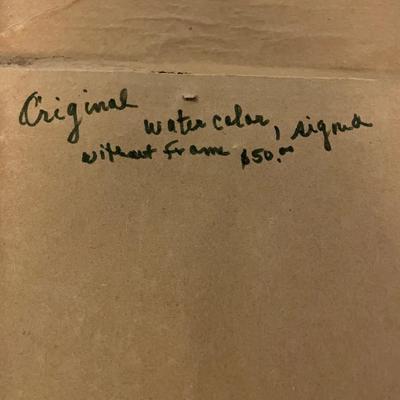 Original
water color, signed
without frame $50.00